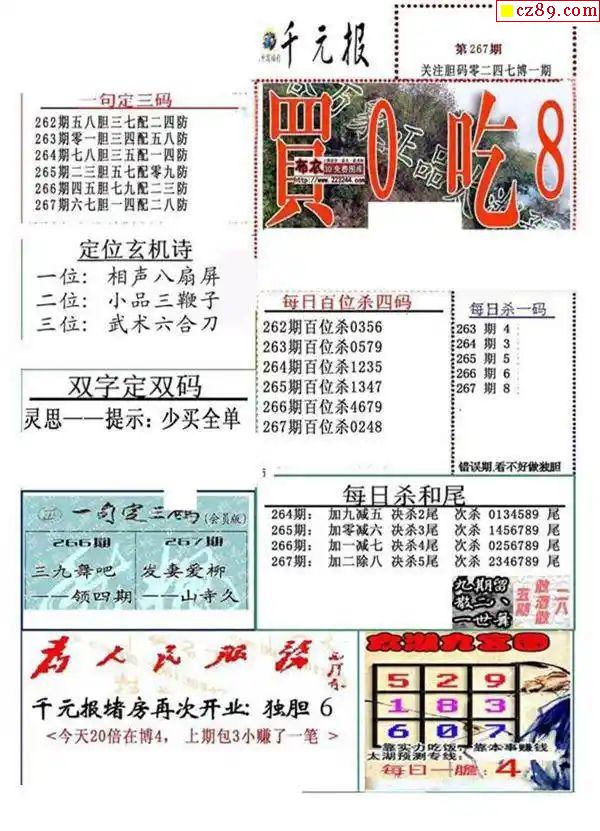 cz89.com
千元报
第267期
关注胆码零二四七博一期
一句定三码
262期五八胆三七配二四防
263期零一胆三四配五八防
264期七八胆三五配一四防
265期二三胆五七配零九防
266期四五胆七九配二三防
267期六七胆一四配二八防
買0吃8
布衣
3D免费图库
定位玄机诗
一位：相声八扇屏
二位：小品三鞭子
三位：武术六合刀
每日百位杀四码
262期百位杀0356
263期百位杀0579
264期百位杀1235
265期百位杀1347
266期百位杀4679
267期百位杀0248
每日杀一码
263 期 4
264 期 3
265 期 5
266 期 6
267 期 8
错误期,看不好做独胆
双字定双码
灵思——提示：少买全单
一句定三码(会员版)
266期
三九舞吧
——领四期
267期
发妻爱柳
——山寺久
每日杀和尾
264期： 加九减五 决杀2尾 次杀 0134589 尾
265期： 加零减六 决杀3尾 次杀 1456789 尾
266期： 加一减七 决杀4尾 次杀 0256789 尾
267期： 加二除八 决杀5尾 次杀 2346789 尾
为人民服务
千元报堵房再次开业：独胆 6
<今天20倍在博4， 上期包3小赚了一笔 >
太湖九宫图
5 2 9
1 8 3
6 0 7
靠实力吃饭，靠本事赚钱
太湖预测专线:
每日一胆: 4